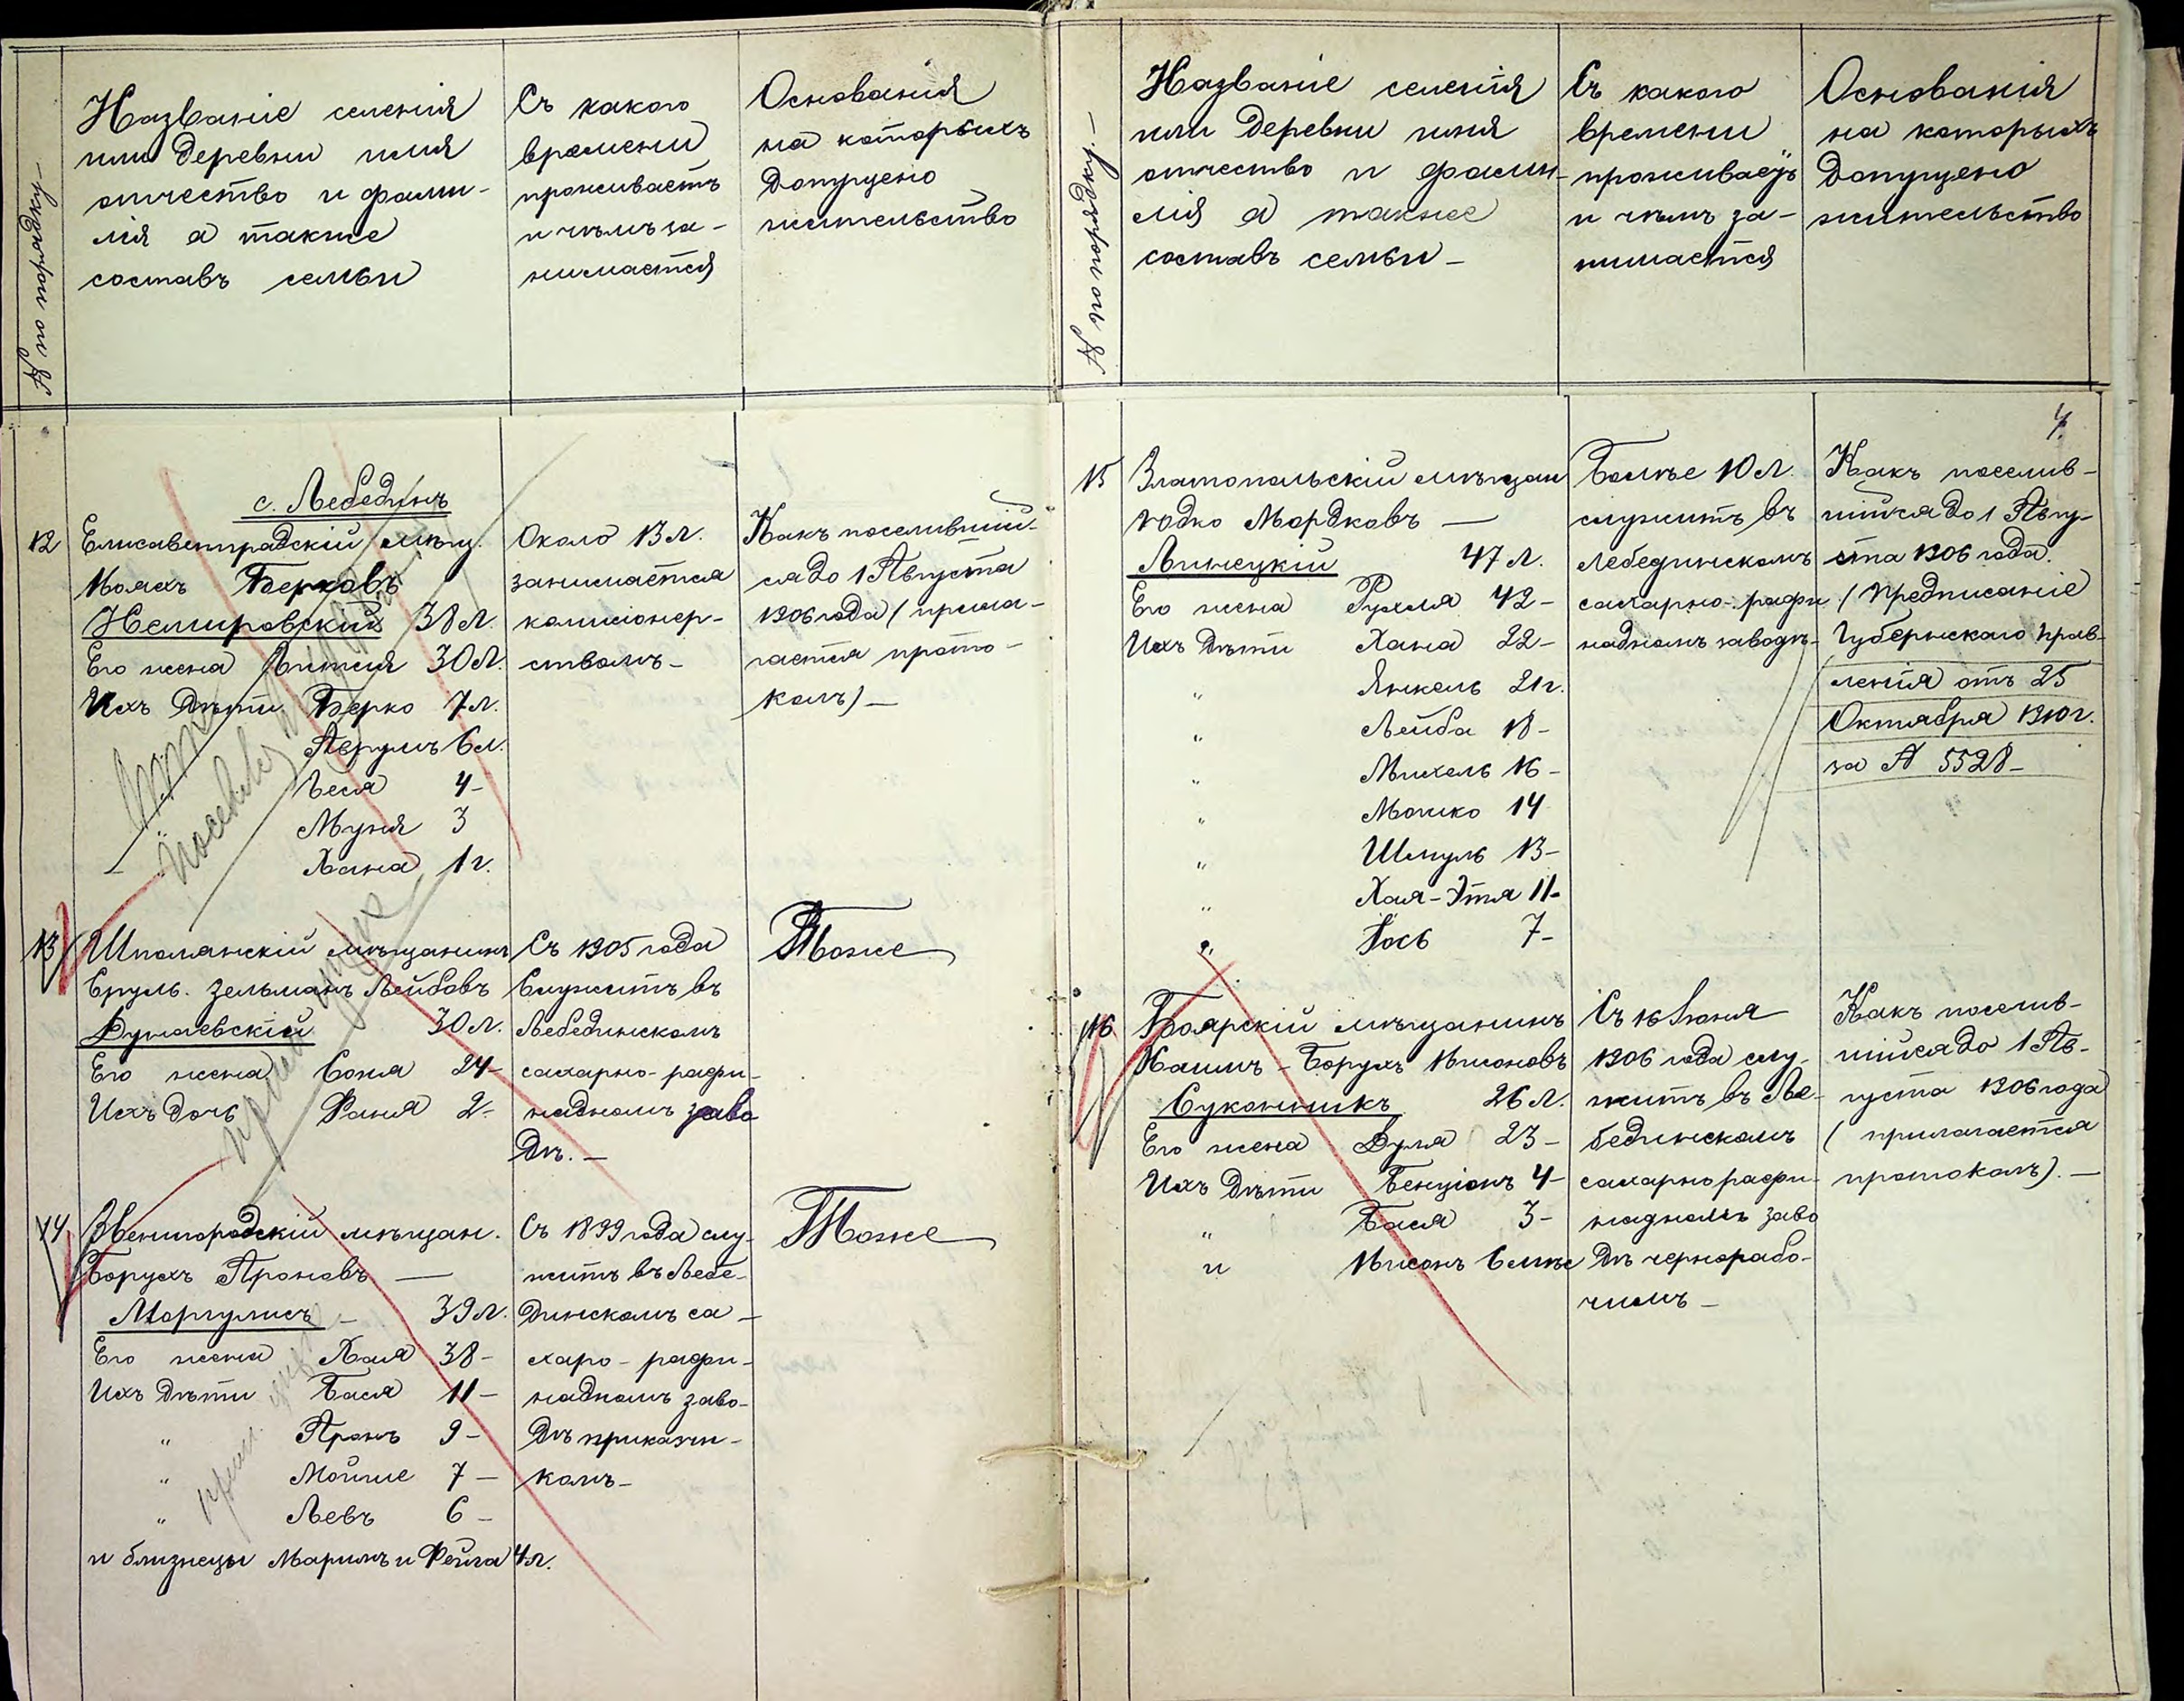 № по порядку –
Названіе селенія
или деревни имя
отчество и фами-
лія а также
составъ семьи
Съ какого
времени
проживаетъ
и чѣмъ за-
нимается
Основанія
на которыхъ
допущено
жительство
с. Лебединъ
12
Елисаветградскій мѣщ.
Берковъ
Немировскій 38 л.
Его жена 30 л.
Ихъ дѣти Берко 7 л.
Аврумъ 6 л.
Бася 4 –
Муня 3
Хана 1 г.
Около 13 л.
занимается
комисіонер-
ствомъ –
Какъ поселившій-
ся до 1 Августа
1906 года (прила-
гается прото-
колъ) –
13
Шполянскій мѣщанинъ
Сруль-Зельманъ Лейбовъ
Дунаевскій 30 л.
Его жена Соня 24 –
Ихъ дочь Фаня 2 –
Съ 1905 года
служитъ въ
Лебединскомъ
сахарно-рафи-
надномъ заво
дѣ. –
Тоже
14
Звенигородскій мѣщан.
Борухъ Ароновъ —
Моргулисъ – 39 л.
Его жена Хая 38 –
Ихъ дѣти Бася 11 –
" Аронъ 9 –
" Мойше 7 –
" Левъ 6 –
и близнецы Маримъ и Фейга 4 л.
Съ 1899 года слу-
житъ въ Лебе-
динскомъ са –
харо-рафи-
надномъ заво-
дѣ прикащи-
комъ –
Тоже
№ по порядку –
Названіе селенія
или деревни имя
отчество и фами-
лія а также
составъ семьи –
Съ какого
времени
проживаетъ
и чѣмъ за-
нимается
Основанія
на которыхъ
допущено
жительство
4.
15
Златопольскій мѣщан
Іодко Мордковъ —
Линецкій 47 л.
Его жена Рухля 42 –
Ихъ дѣти Хана 22 –
" Янкель 21 г.
" Лейба 18 –
" Михель 16 –
" Мошко 14
" Шмуль 13 –
" Хая-Этя 11 –
" Іось 7 –
Болѣе 10 л.
служитъ въ
Лебединскомъ
сахарно-рафи
надномъ заводѣ –
Какъ поселив-
шійся до 1 Авгу-
ста 1906 года.
(Предписаніе
Губернскаго прав-
ленія отъ 25
Октября 1910 г.
за № 5528 –
16
Боярскій мѣщанинъ
Хаимъ-Борухъ Нисоновъ
Суконникъ 26 л.
Его жена Дуня 23 –
Ихъ дѣти Бенціонъ 4 –
" Бася 3 –
и Нисонъ 6 мѣс
Съ 16 Іюня
1906 года слу-
житъ въ Ле-
бединскомъ
сахарнорафи-
надномъ заво
дѣ чернорабо-
чимъ –
Какъ поселив-
шійся до 1 Ав-
густа 1906 года
(прилагается
протоколъ). –